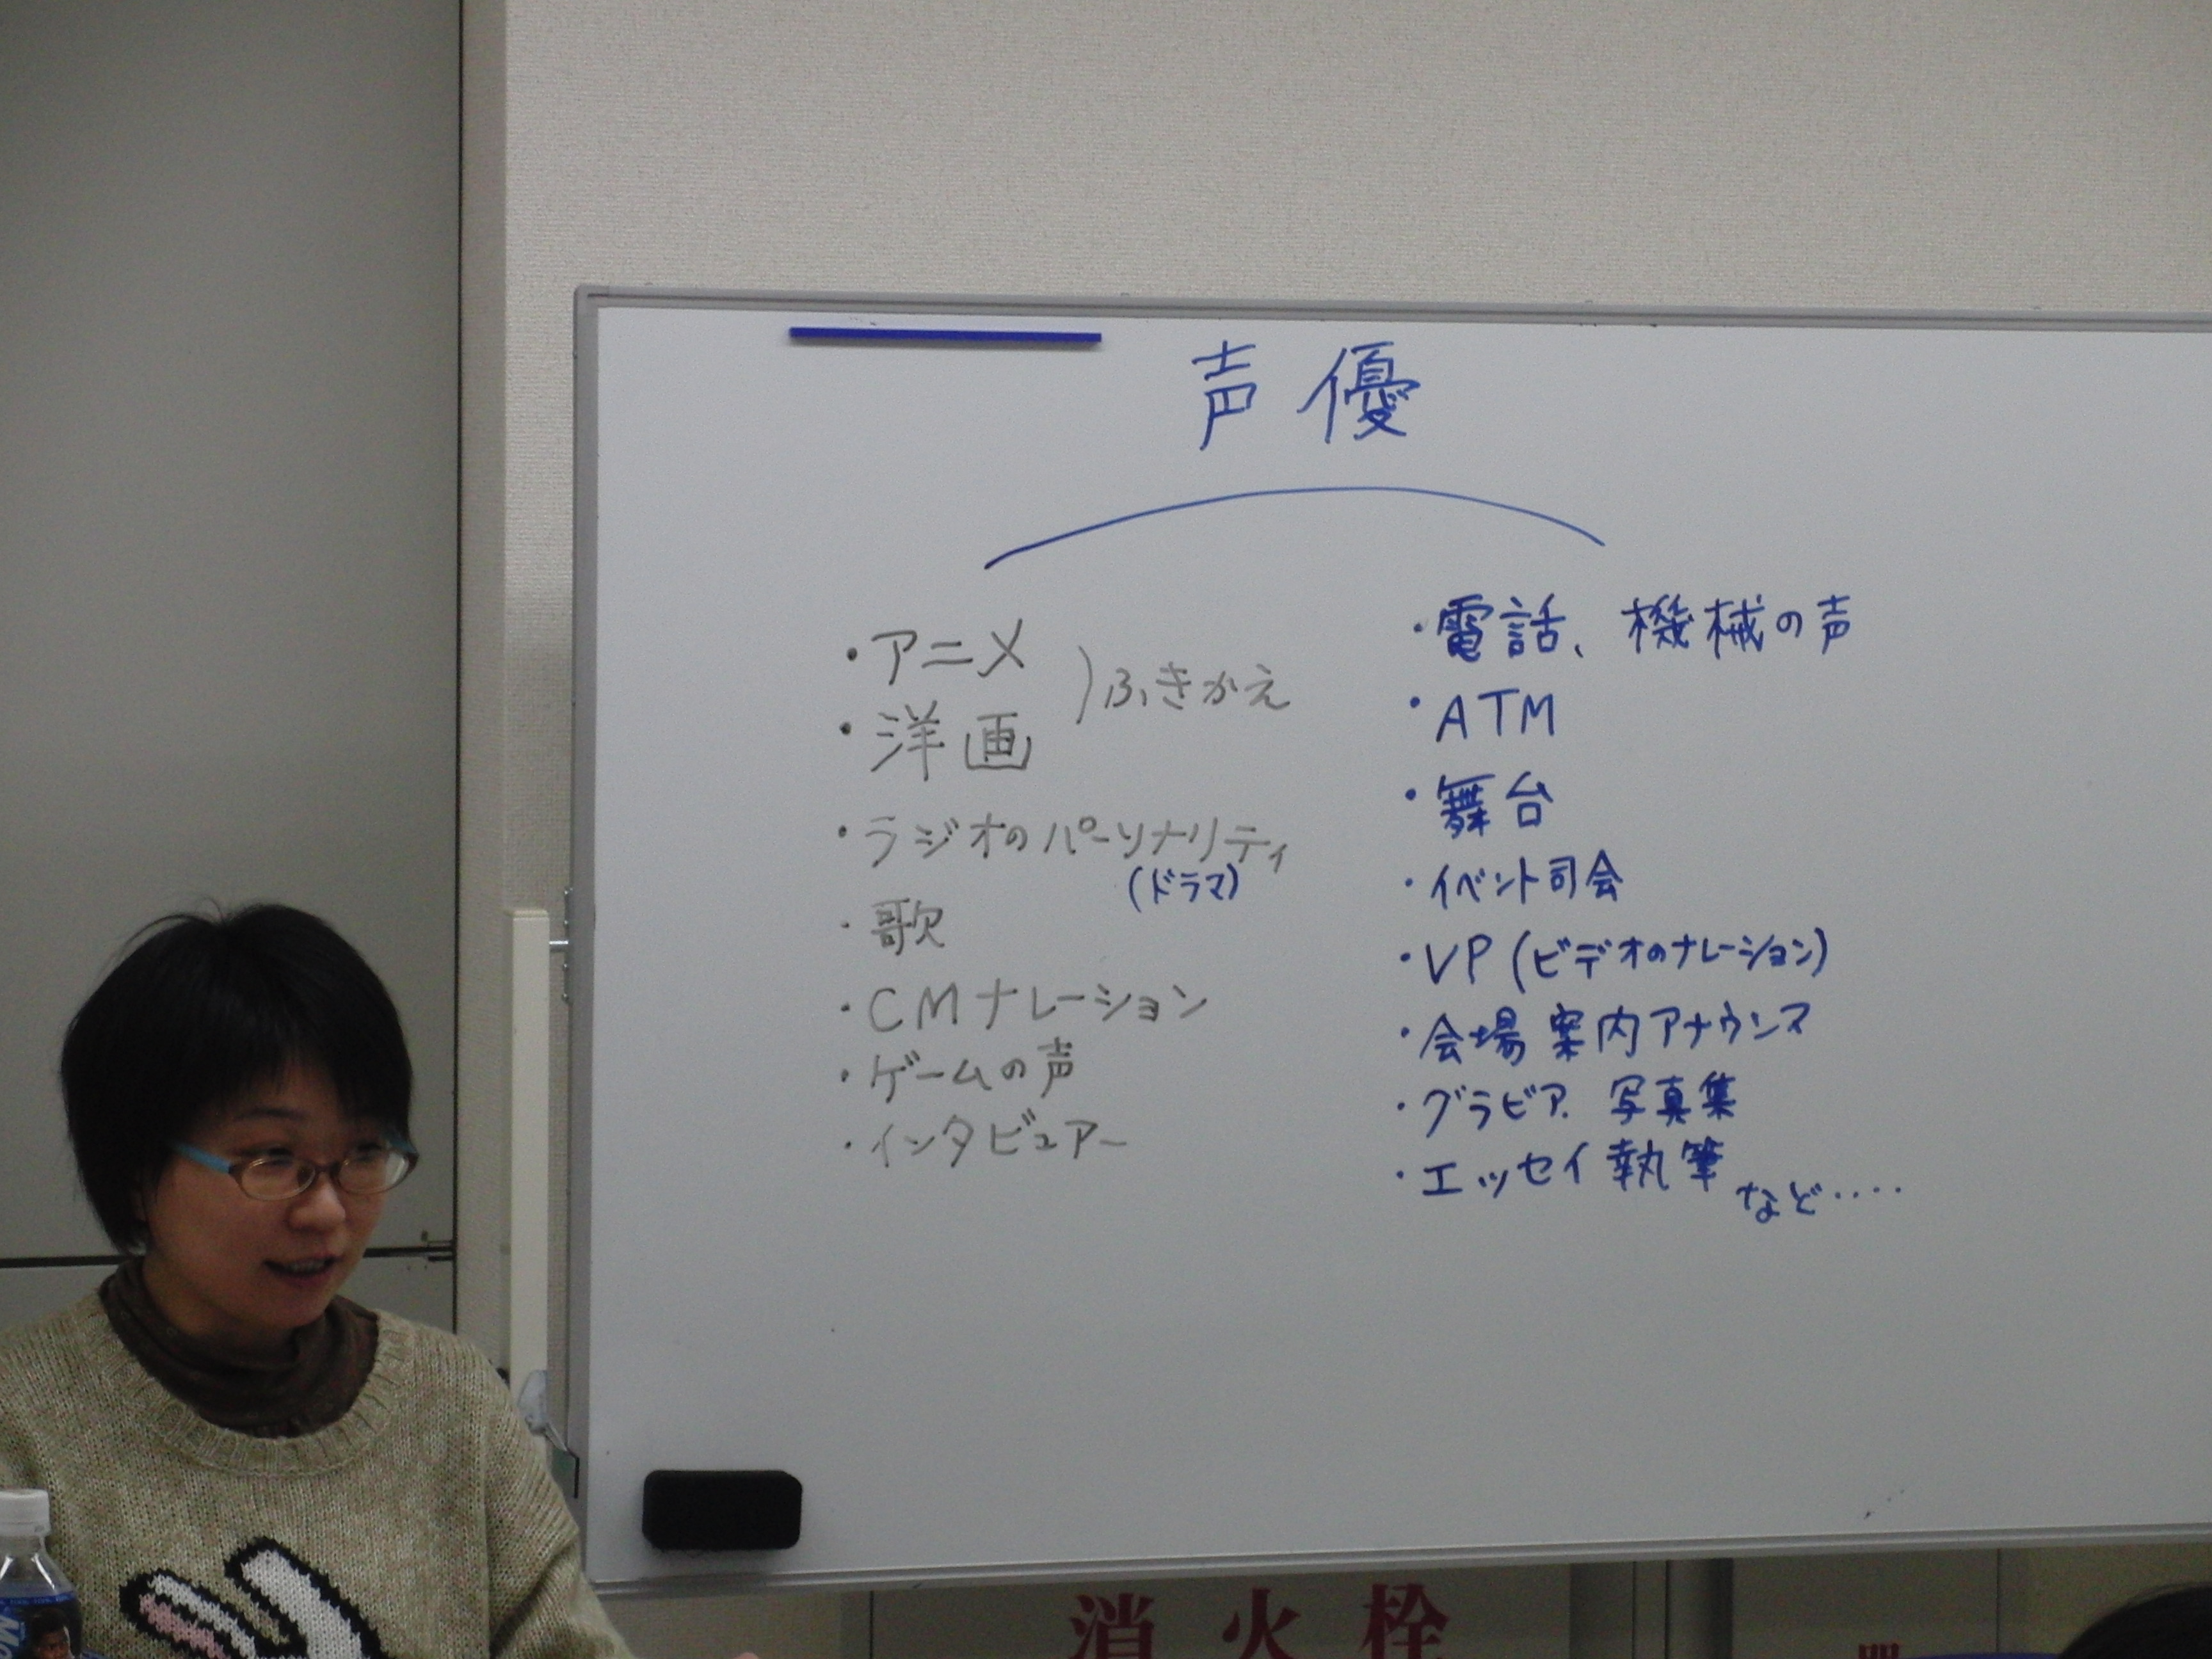 声優
・アニメ
・洋画
)ふきかえ
・ラジオのパーソナリティ
(ドラマ)
・歌
・CMナレーション
・ゲームの声
・インタビュアー
・電話、機械の声
・ATM
・舞台
・イベント司会
・VP(ビデオのナレーション)
・会場案内アナウンス
・グラビア.写真集
・エッセイ執筆など‥‥
消火栓